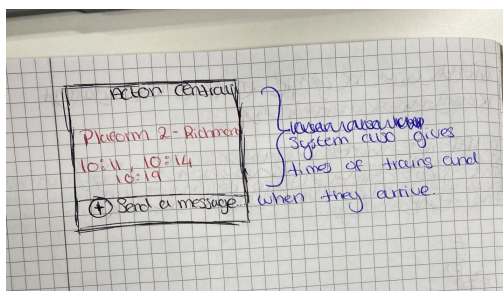 Acton Central
Platform 2 - Richmond
10:11, 10:14
10:19
+ Send a message...
System also gives
times of trains and
when they arrive.